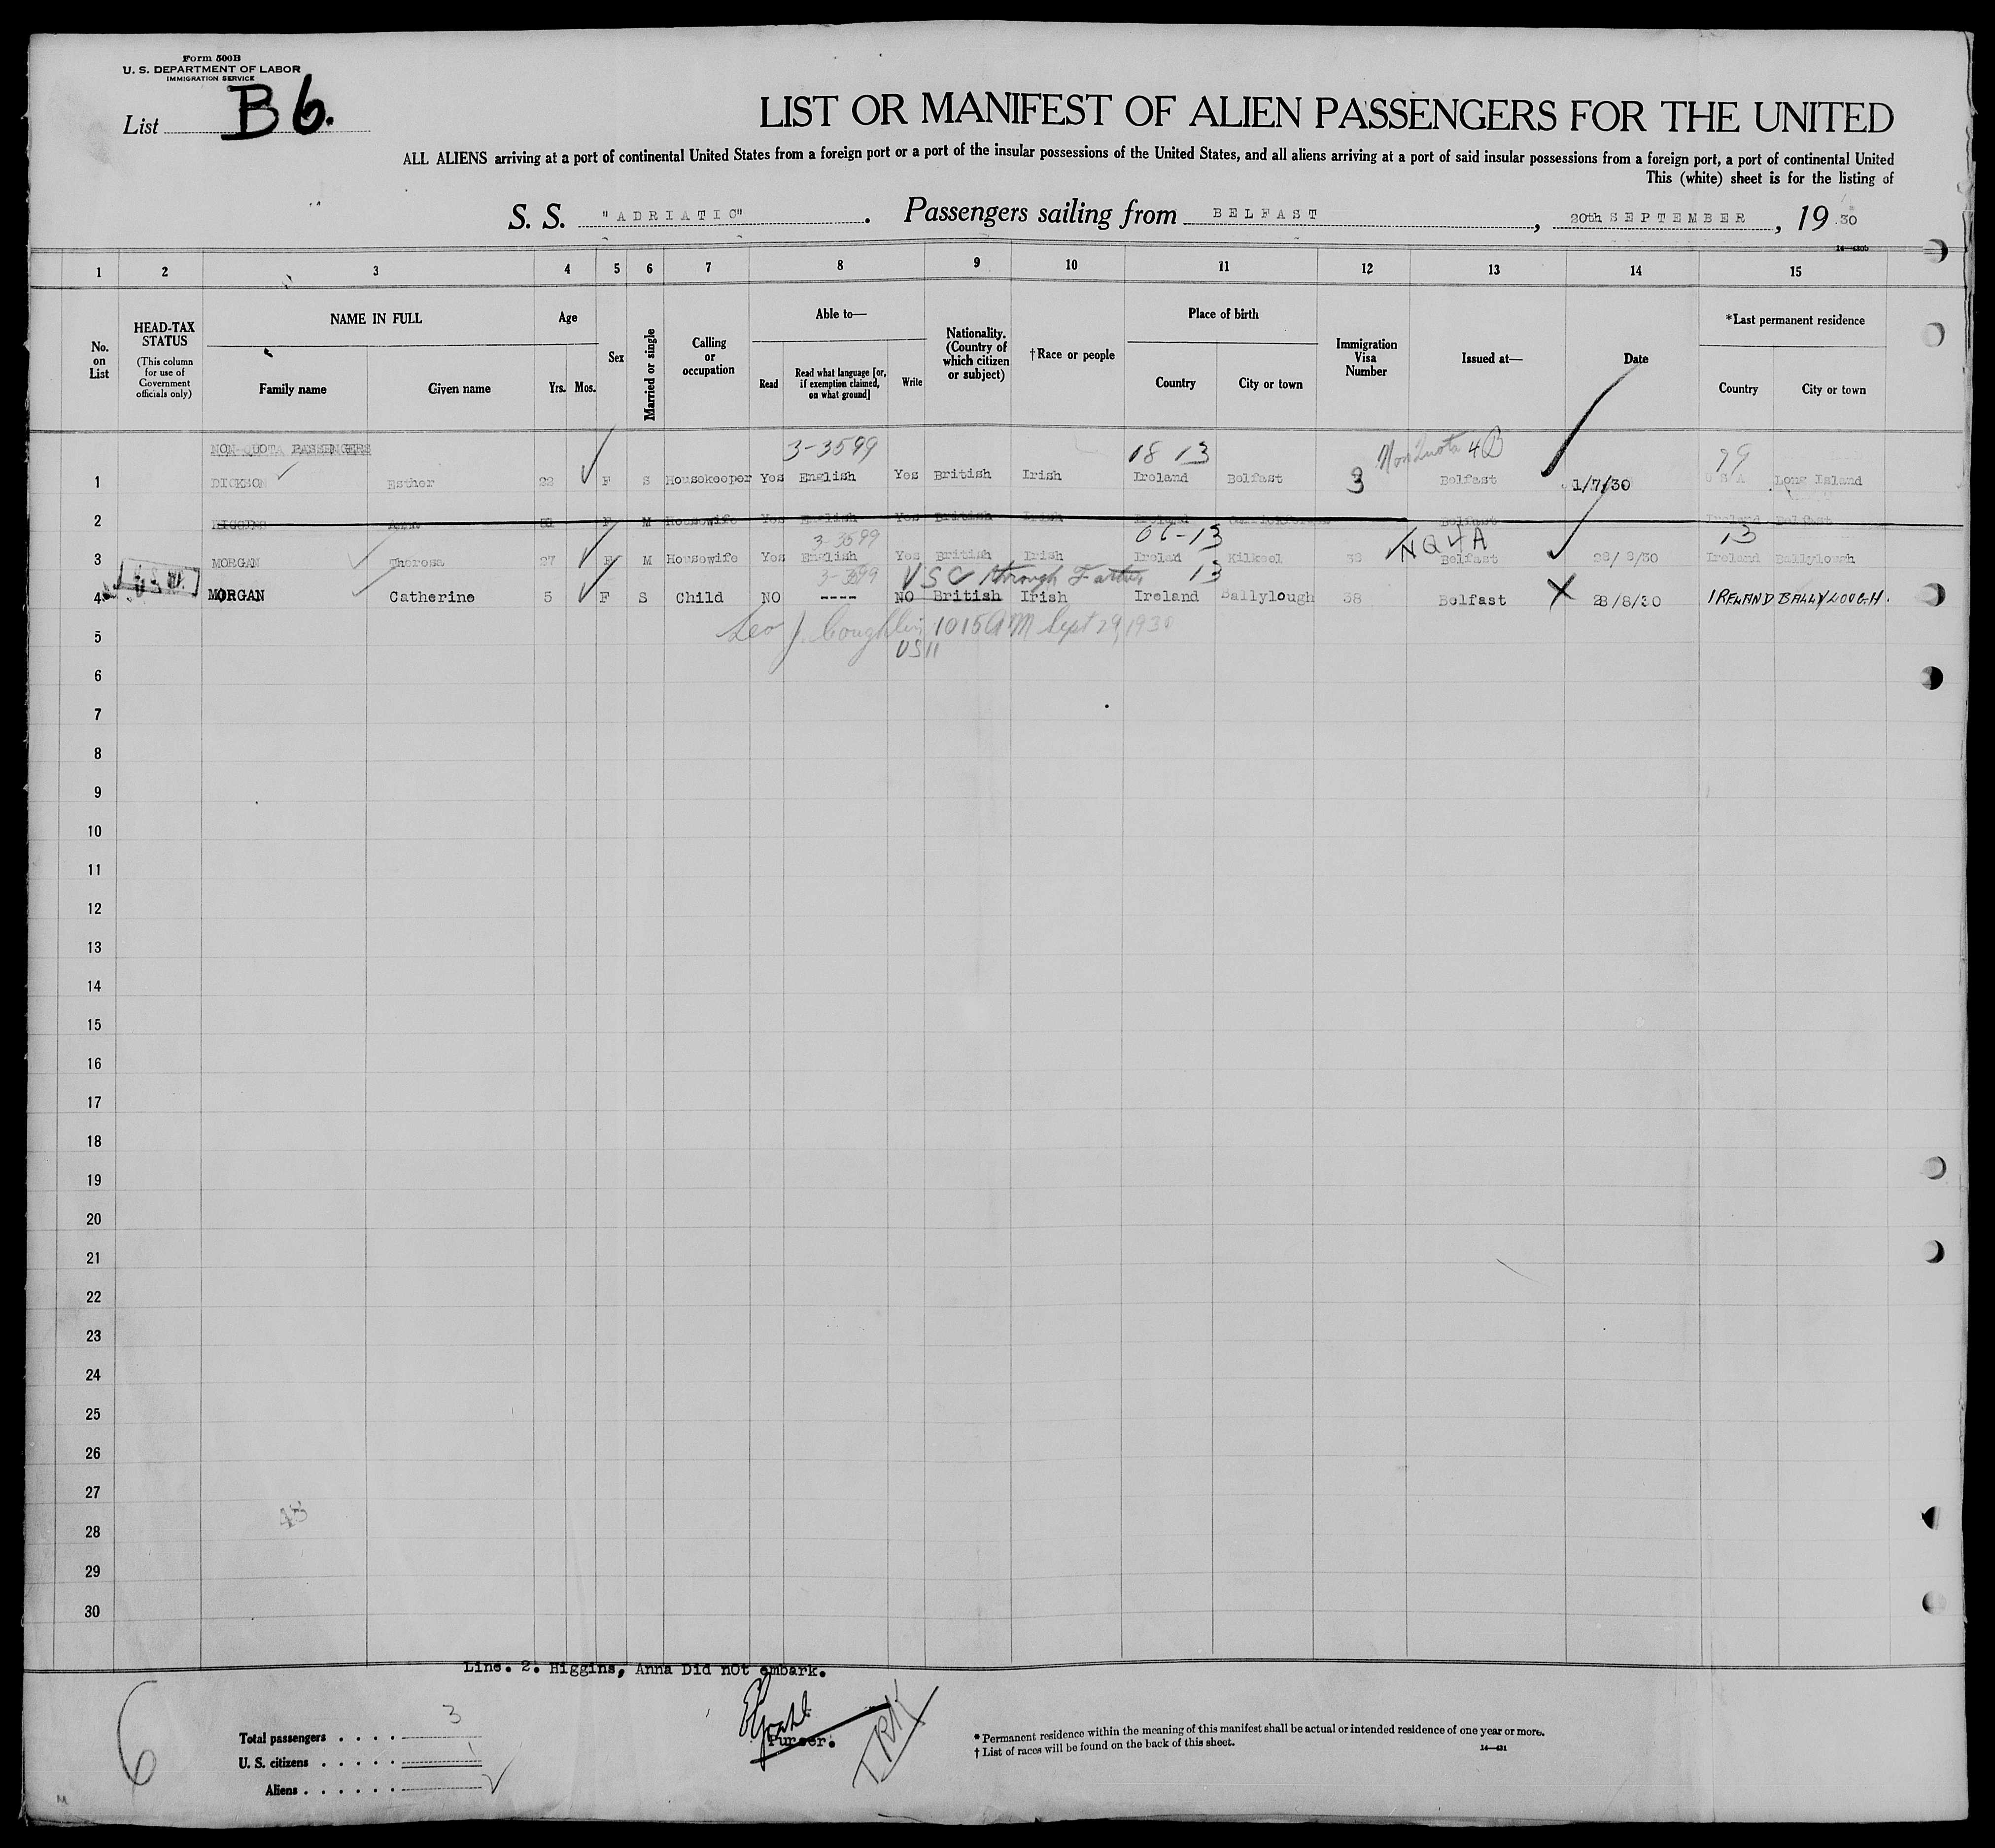 Form 500B
U. S. DEPARTMENT OF LABOR
IMMIGRATION SERVICE
List B 6.
LIST OR MANIFEST OF ALIEN PASSENGERS FOR THE UNITED
ALL ALIENS arriving at a port of continental United States from a foreign port or a port of the insular possessions of the United States, and all aliens arriving at a port of said insular possessions from a foreign port, a port of continental United
This (white) sheet is for the listing of
S. S. "ADRIATIC". Passengers sailing from BELFAST, 20th SEPTEMBER, 19 30
1 2 3 4 5 6 7 8 9 10 11 12 13 14 15
No. on List
HEAD-TAX STATUS
(This column for use of Government officials only)
NAME IN FULL
Family name
Given name
Age
Yrs. Mos.
Sex
Married or single
Calling or occupation
Able to—
Read
Read what language [or, if exemption claimed, on what ground]
Write
Nationality. (Country of which citizen or subject)
†Race or people
Place of birth
Country
City or town
Immigration Visa Number
Issued at—
Date
*Last permanent residence
Country
City or town
NON-QUOTA PASSENGERS 3-3599 18 13 Non Quota 4B 79
1 DICKSON Esther 22 F S Housekeeper Yes English Yes British Irish Ireland Belfast 3 Belfast 1/7/30 U S A Long Island
2 HIGGINS Anna F M Housewife Yes English Yes British Irish Ireland Belfast Ireland Belfast
3-3599 06-13 NQ4A 13
3 MORGAN Theresa 27 F M Housewife Yes English Yes British Irish Ireland Kilkeel 38 Belfast 28/8/30 Ireland Ballylough
3-3599 USC through Father 13
4 MORGAN Catherine 5 F S Child NO ---- NO British Irish Ireland Ballylough 38 Belfast 28/8/30 IRELAND BALLYLOUGH.
Leo J. Coughlin 1015 AM Sept 29, 1930
5
6
7
8
9
10
11
12
13
14
15
16
17
18
19
20
21
22
23
24
25
26
27
28
29
30
Line. 2. Higgins, Anna Did not embark.
6
Total passengers . . . . 3
U. S. citizens . . . . . 1
Aliens . . . . . .
Purser.
* Permanent residence within the meaning of this manifest shall be actual or intended residence of one year or more.
† List of races will be found on the back of this sheet.
14—431